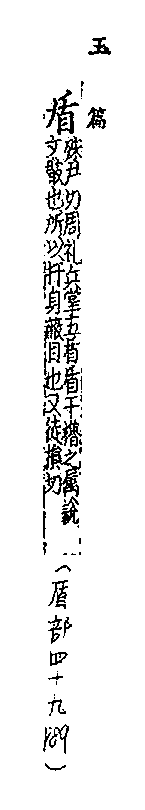 玉篇
盾殊尹切周礼兵掌五盾盾干櫓之属說
文瞂也所以扞身蔽目也又徒損切
(盾部四十九189)